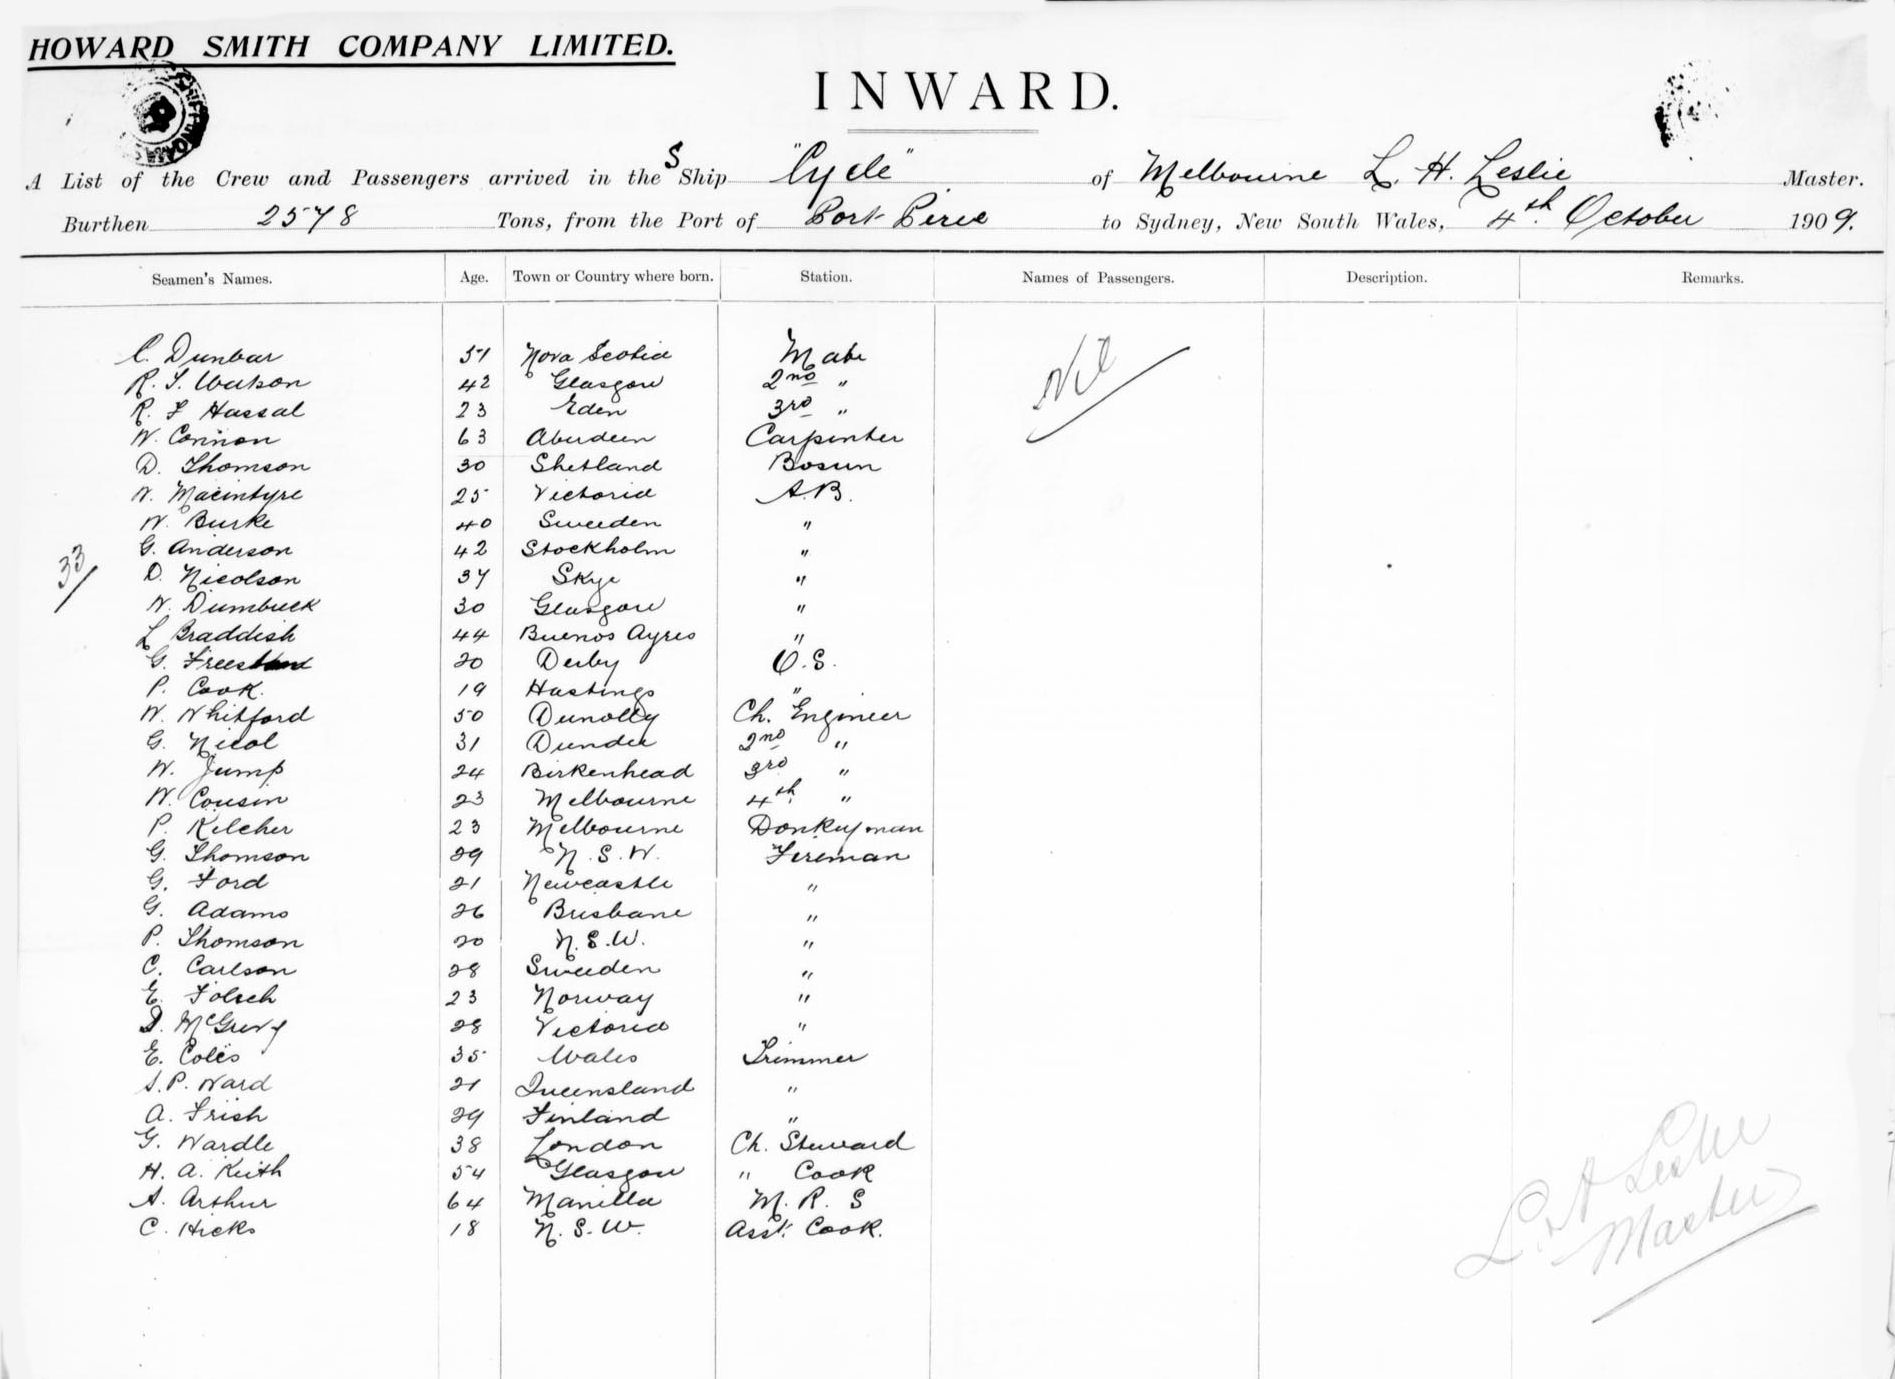 HOWARD SMITH COMPANY LIMITED.
INWARD.
A List of the Crew and Passengers arrived in the S Ship "Cycle" of Melbourne L. H. Leslie Master.
Burthen 2578 Tons, from the Port of Port Pirie to Sydney, New South Wales, 4th October 1909.
Seamen's Names. Age. Town or Country where born. Station. Names of Passengers. Description. Remarks.
C. Dunbar 51 Nova Scotia Mate Nil
R. S. Watson 42 Glasgow 2nd "
R. F Hassal 23 Eden 3rd "
W. Connon 63 Aberdeen Carpenter
D. Thomson 30 Shetland Bosun
W. Macintyre 25 Victoria A.B.
W. Burke 40 Sweeden "
G. Anderson 42 Stockholm "
33/
D. Nicolson 37 Skye "
W. Dumbuck 30 Glasgow "
L Braddish 44 Buenos Ayres "
G. 20 Derby O.S.
P. Cook. 19 Hastings "
W. Whitford 50 Dunolly Ch. Engineer
G. Nicol 31 Dundee 2nd "
W. Jump 24 Birkenhead 3rd "
W. Cousin 23 Melbourne 4th "
P. Kelcher 23 Melbourne Donkeyman
G. Thomson 29 N.S.W. Fireman
G. Ford 21 Newcastle "
G. Adams 26 Brisbane "
P. Thomson 20 N.S.W. "
C. Carlson 28 Sweeden "
E. Folsch 23 Norway "
D. 28 Victoria "
E. Coles 35 Wales Trimmer
S.P. Ward 21 Queensland "
A. Frish 29 Finland "
G. Wardle 38 London Ch. Steward
H. A. Keith 54 Glasgow " Cook
A. Arthur 64 Manilla M. R. S
C. Hicks 18 N.S.W. Asst. Cook.
L. H Leslie
Master